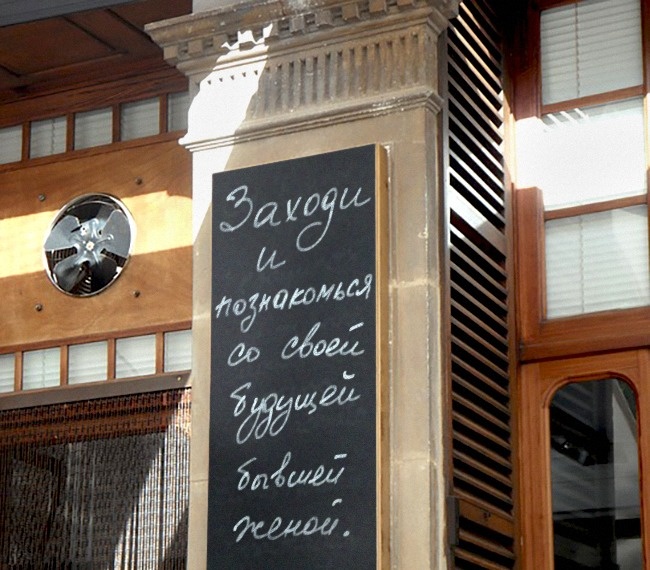 Заходи
и
познакомься
со своей
будущей
бывшей
женой.